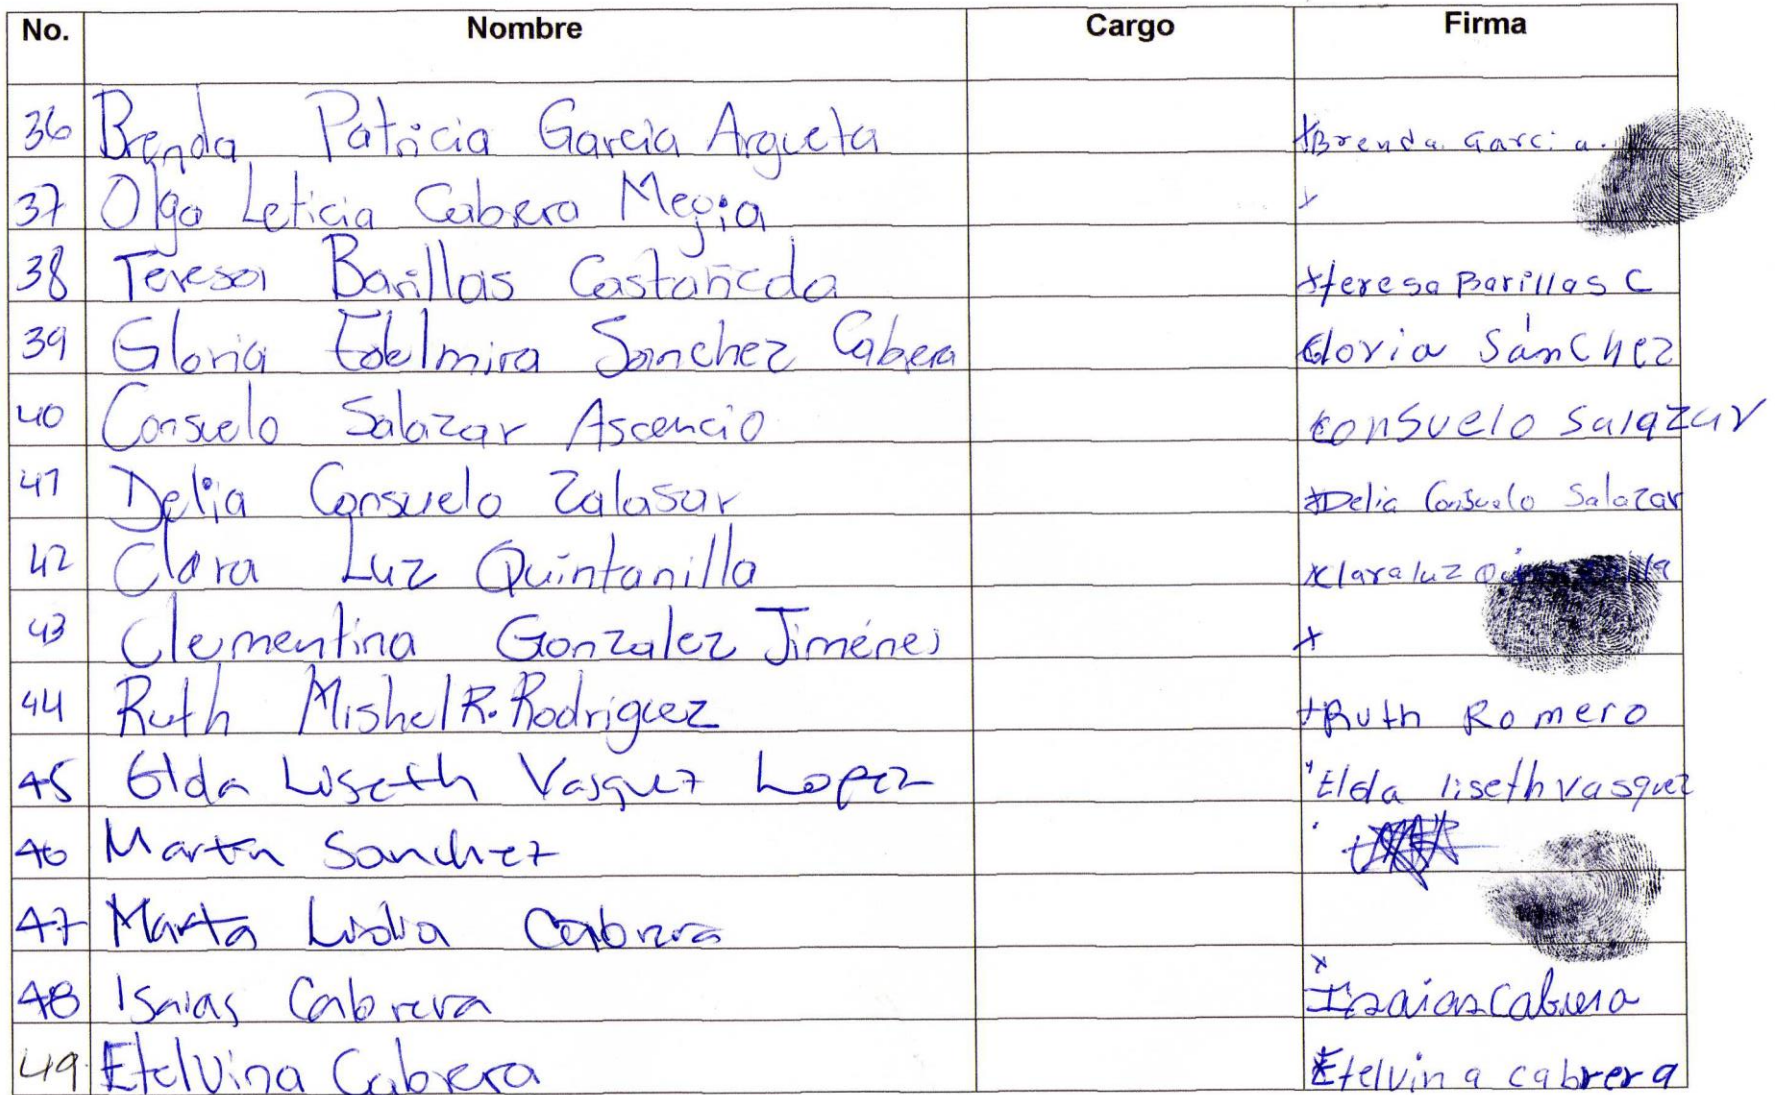 No. Nombre Cargo Firma
36 Brenda Patricia Garcia Argueta xBrenda Garcia.
37 Olga Leticia Cabrera Megia x
38 Teresa Barillas Castañeda xteresa Barillas C
39 Gloria Edelmira Sanchez Cabera Gloria Sánchez
40 Consuelo Salazar Ascencio consuelo Salazar
41 Delia Consuelo Zalasar xDelia Consuelo Salazar
42 Clara Luz Quintanilla xclara luz
43 Clementina Gonzalez Jiménes x
44 Ruth Mishel R. Rodriguez +Ruth Romero
45 Elda Liseth Vasquez Lopez Elda liseth vasquez
46 Marta Sanchez
47 Marta Lidia Cabrera
48 Isaias Cabrera x Izaias Cabrera
49 Etelvina Cabrera Etelvina cabrera